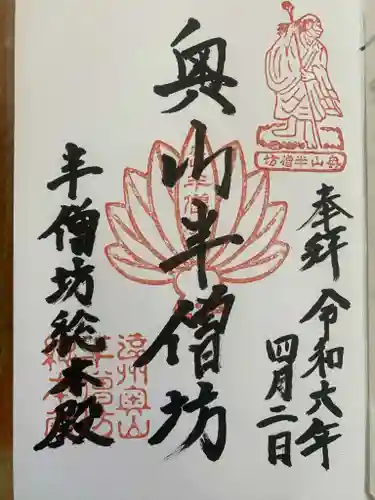 奥山半僧坊
奉拝
令和六年
四月二日
奥山半僧坊
半僧坊総本殿
遠州奥山